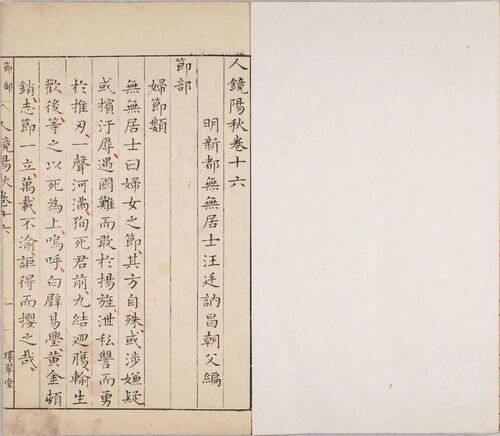 人鏡陽秋卷十六
明新都無無居士汪廷訥昌朝父編
節部
婦節類
無無居士曰婦女之節其方自殊或涉嫌疑
或擯汙辱遇國難而敢於揚旌泄私讐而勇
於推刃一聲河滿狥死君前九結迴腸輪生
歡後等之以死為上嗚呼白璧易壘黃金頓
銷志節一立萬載不渝詎得而攖之哉
節部 人鏡陽秋卷十六 一 環翠堂